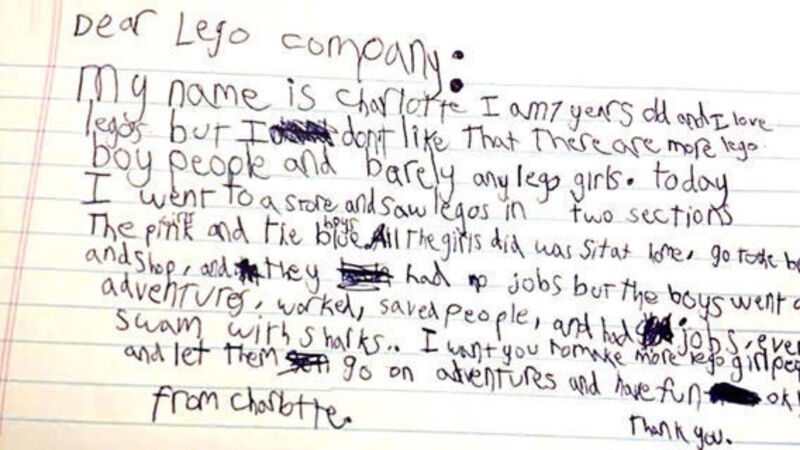 Dear Lego company:
My name is Charlotte I am 7 years old and I love
legos but I don't like That There are more lego
boy people and barely any lego girls. today
I went to a store and saw legos in two sections
The pink girls and the blue boys. All the girls did was sit at home, go to the be
and shop, and they had no jobs but the boys went o
adventures, worked, saved people, and had jobs, even
swam with sharks.. I want you to make more lego girl peo
and let them go on adventures and have fun ok!
from Charlotte.
Thank you.